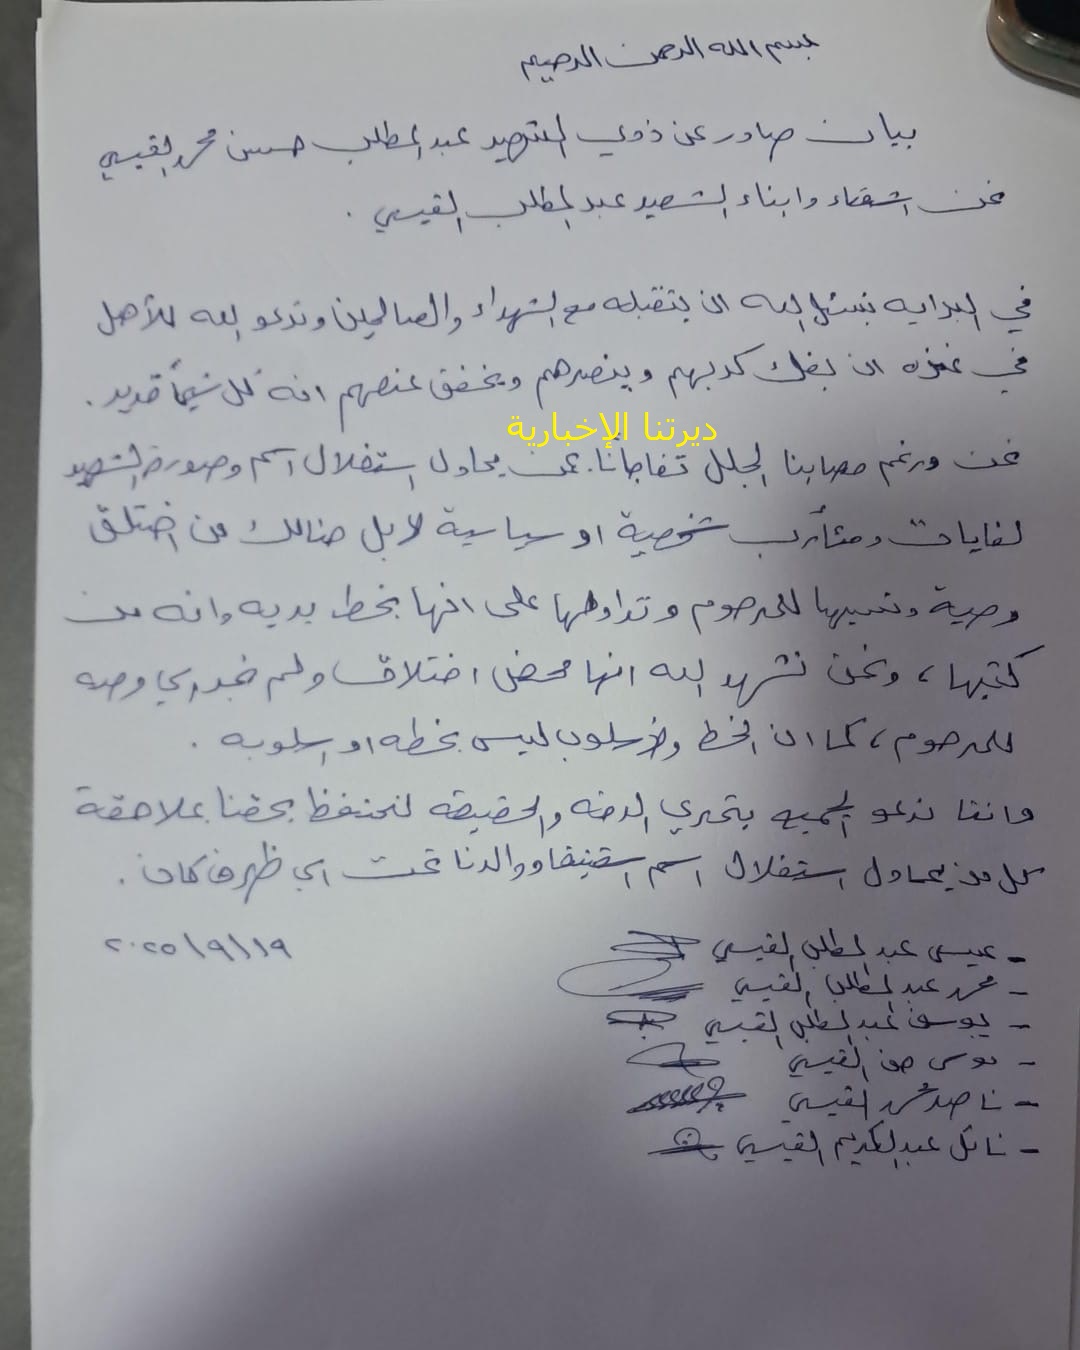 بسم الله الرحمن الرحيم
بيان صادر عن ذوي الشهيد عبد المطلب حسن محمد القيسي
نحن اشقاء وابناء الشهيد عبد المطلب القيسي .
في البدايه نسئل الله ان يتقبله مع الشهداء والصالحين وندعو الله للأهل
في غزه ان يفك كربهم وينصرهم ويخفف عنهم انه كل شيئاً قدير .
ديرتنا الإخبارية
نحن ورغم مصابنا الجلل تفاجأنا بمن يحاول استغلال اسم وصورة الشهيد
لغايات ومئأرب شخصية او سياسية لا بل هنالك من اختلق
وصية ونسبها للمرحوم وتداولها على انها بخط يديه وانه من
كتبها ، ونحن نشهد الله انها محض اختلاق ولم نجد اي وصيه
للمرحوم ، كما ان الخط والأسلوب ليس بخطه او اسلوبه .
واننا ندعو الجميع بتحري الدقه والحقيقه لنحتفظ بحقنا بملاحقة
كل من يحاول استغلال اسم شقيقنا ووالدنا تحت اي ظرف كان .
٢٠٢٥/٩/١٩
- عيسى عبد المطلب القيسي
- محمد عبد المطلب القيسي
- يوسف عبد المطلب القيسي
- موسى حسن القيسي
- ناصر محمد القيسي
- نائل عبد الكريم القيسي